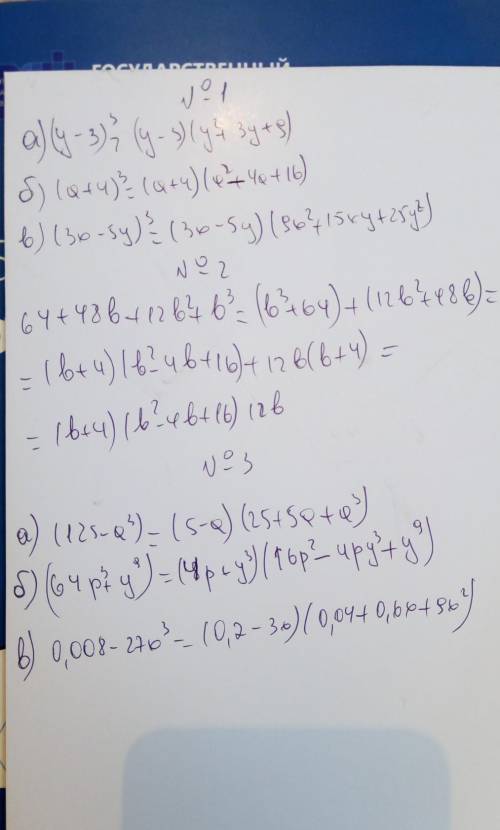 ГОСУДАРСТВЕННЫЙ
№1
а) (y-3)³= (y-3)(y²+3y+9)
б) (a+4)³=(a+4)(a²+4a+16)
в) (3x-5y)³=(3x-5y)(9x²+15xy+25y²)
№2
64+48b+12b²+b³=(b³+64)+(12b²+48b)=
=(b+4)(b²-4b+16)+12b(b+4)=
=(b+4)(b²-4b+16)12b
№3
а) (125-a³)=(5-a)(25+5a+a³)
б) (64p³+y⁹)=(4p+y³)(16p²-4py³+y⁹)
в) 0,008-27x³=(0,2-3x)(0,04+0,6x+9x²)